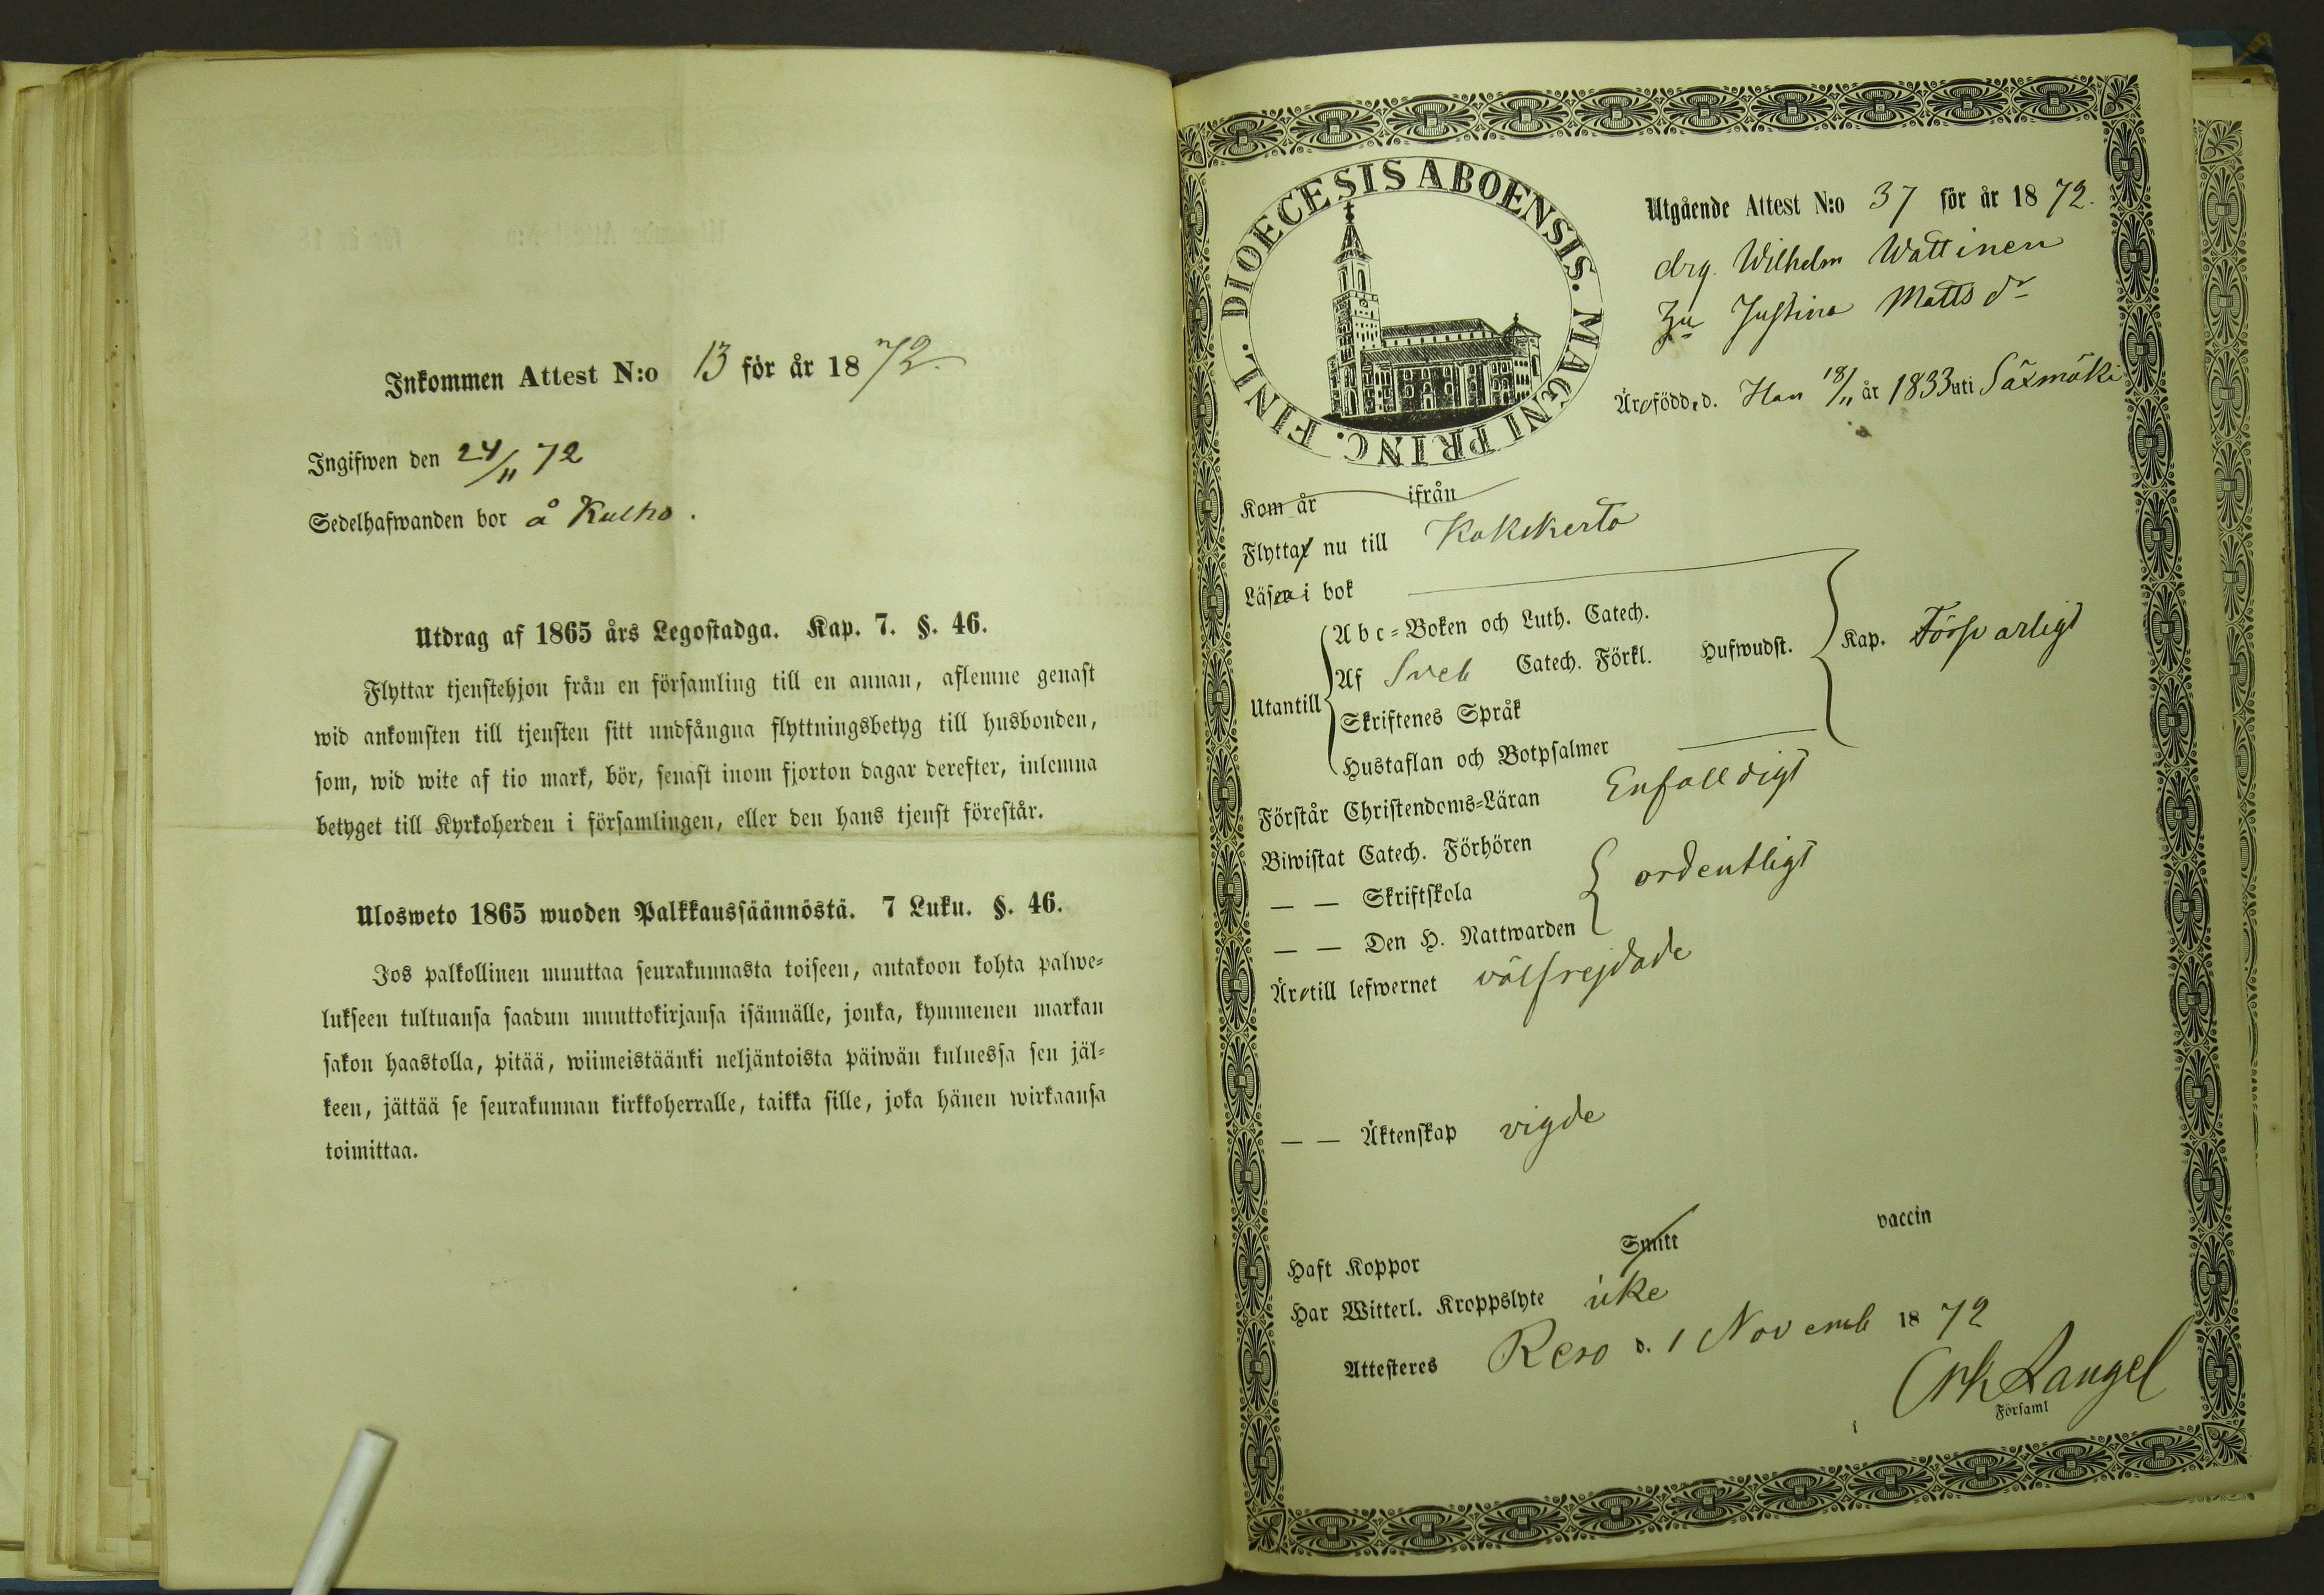 Inkommen Attest N:o 13 för år 1872.
Ingifwen den 24/11 72
Sedelhafwanden bor å Kulho.
Utdrag af 1865 års Legostadga. Kap. 7. §. 46.
Flyttar tjenstehjon från en församling till en annan, aflemne genast
wid ankomsten till tjensten sitt undfångna flyttningsbetyg till husbonden,
som, wid wite af tio mark, bör, senast inom fjorton dagar derefter, inlemna
betyget till Kyrkoherden i församlingen, eller den hans tjenst förestår.
Ulosweto 1865 wuoden Palkkaussäännöstä. 7 Luku. §. 46.
Jos palkollinen muuttaa seurakunnasta toiseen, antakoon kohta palwe=
lukseen tultuansa saadun muuttokirjansa isännälle, jonka, kymmenen markan
sakon haastolla, pitää, wiimeistäänki neljäntoista päiwän kuluessa sen jäl=
keen, jättää se seurakunnan kirkkoherralle, taikka sille, joka hänen wirkaansa
toimittaa.
DIOECESIS ABOENSIS. MAGNI PRINC. FINL.
Utgående Attest N:o 37 för år 1872.
drg. Wilhelm Wattinen
Justina Matts dr
Äro född, d. Han 18/11 år 1833 uti Säxmäki
Kom år ifrån
Flytta nu till Kakskerta
Läsa i bok
Utantill
A b c=Boken och Luth. Catech.
Af Sveb Catech. Förkl. Hufwudst.
Skriftenes Språk
Hustaflan och Botpsalmer
Kap. Försvarligt
Förstår Christendoms=Läran Enfalldigt
Biwistat Catech. Förhören
— — Skriftskola
— — Den H. Nattwarden
ordentligt
Äro till lefwernet välfrejdade
— — Äktenskap vigde
Haft Koppor Smitt vaccin
Har Witterl. Kroppslyte icke
Attesteres Reso d. 1 Novemb 1872
Langel
i Församl